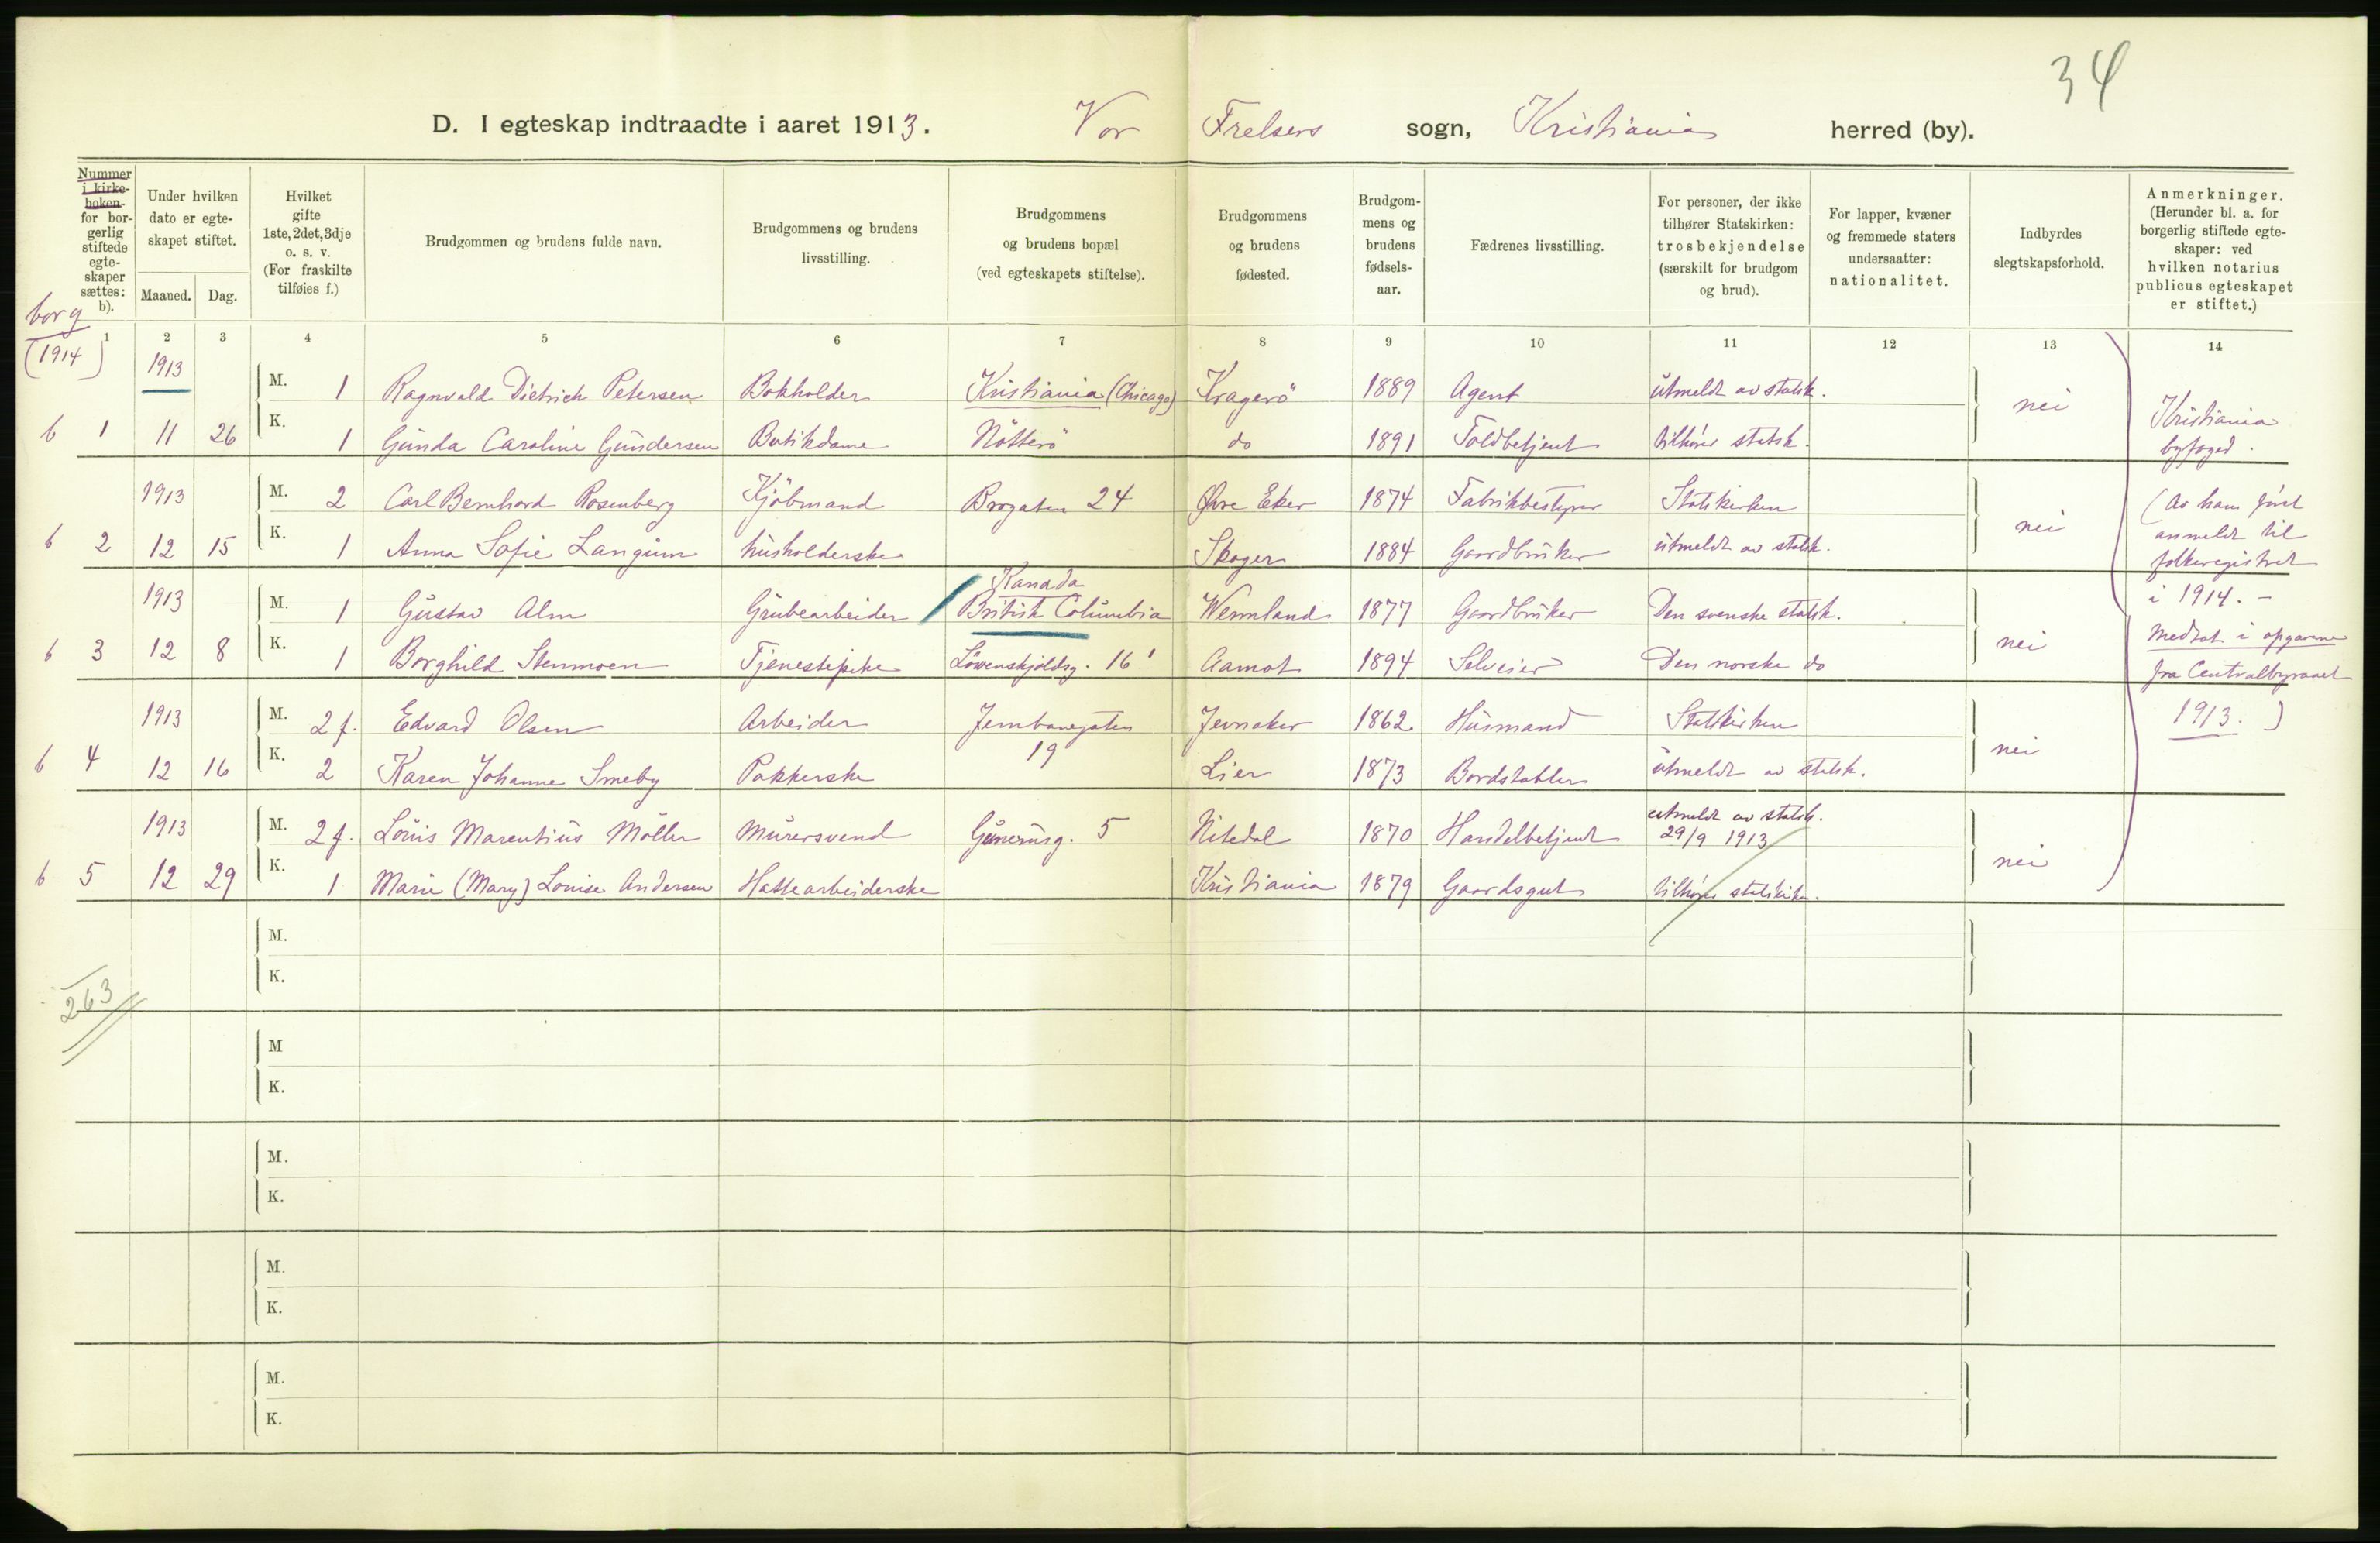 34
D. I egteskap indtraadte i aaret 1913. Vor Frelsers sogn, Kristiania herred (by).
Nummer i kirke-boken for bor-gerlig stiftede egte-skaper sættes: b).
Under hvilken dato er egte-skapet stiftet.
Maaned. Dag.
Hvilket gifte 1ste, 2det, 3dje o. s. v. (For fraskilte tilføies f.)
Brudgommen og brudens fulde navn.
Brudgommens og brudens livsstilling.
Brudgommens og brudens bopæl (ved egteskapets stiftelse).
Brudgommens og brudens fødested.
Brudgom-mens og brudens fødsels-aar.
Fædrenes livsstilling.
For personer, der ikke tilhører Statskirken: trosbekjendelse (særskilt for brudgom og brud).
For lapper, kvæner og fremmede staters undersaatter: nationalitet.
Indbyrdes slegtskapsforhold.
Anmerkninger. (Herunder bl. a. for borgerlig stiftede egte-skaper: ved hvilken notarius publicus egteskapet er stiftet.)
borg
(1914)
1 2 3 4 5 6 7 8 9 10 11 12 13 14
1913 M. 1 Ragnvald Dietrich Petersen Bokholder Kristiania (Chicago) Kragerö 1889 Agent utmeldt av statsk. nei
b 1 11 26 K. 1 Gunda Caroline Gundersen Butikdame Nötterö do 1891 Toldbetjent tilhører statsk.
Kristiania
byfoged.
1913 M. 2 Carl Bernhard Rosenberg Kjöbmand Brogaten 24 Øvre Eker 1874 Fabrikbestyrer Statskirken nei
b 2 12 15 K. 1 Anna Sofie Langum husholderske Skoger 1884 Gaardbruker utmeldt av statsk.
(Av ham först
anmeldt til
folkeregistret
i 1914. –
Medtat i opgavene
fra Centralbyraaet
1913. )
Kanada
1913 M. 1 Gustav Alm Grubearbeider British Columbia Wermland 1877 Gaardbruker Den svenske statsk. nei
b 3 12 8 K. 1 Borghild Stenmoen Tjenestepike Lövenskjoldsg. 16' Aamot 1894 Selveier Den norske do
1913 M. 2 f. Edvard Olsen Arbeider Jernbanegaten Jevnaker 1862 Husmand Statskirken nei
19
b 4 12 16 K. 2 Karen Johanne Smeby Pakkerske Lier 1873 Bordstabler utmeldt av statsk.
1913 M. 2 f. Louis Marentius Möller Murersvend Gunerusg. 5 Nitedal 1870 Handelbetjent utmeldt av statsk.
29/9 1913 nei
b 5 12 29 K. 1 Marie (Mary) Louise Andersen Hattearbeiderske Kristiania 1879 Gaardsgut tilhører statskirken.
M.
K.
263
M
K.
M.
K.
M.
K.
M.
K.